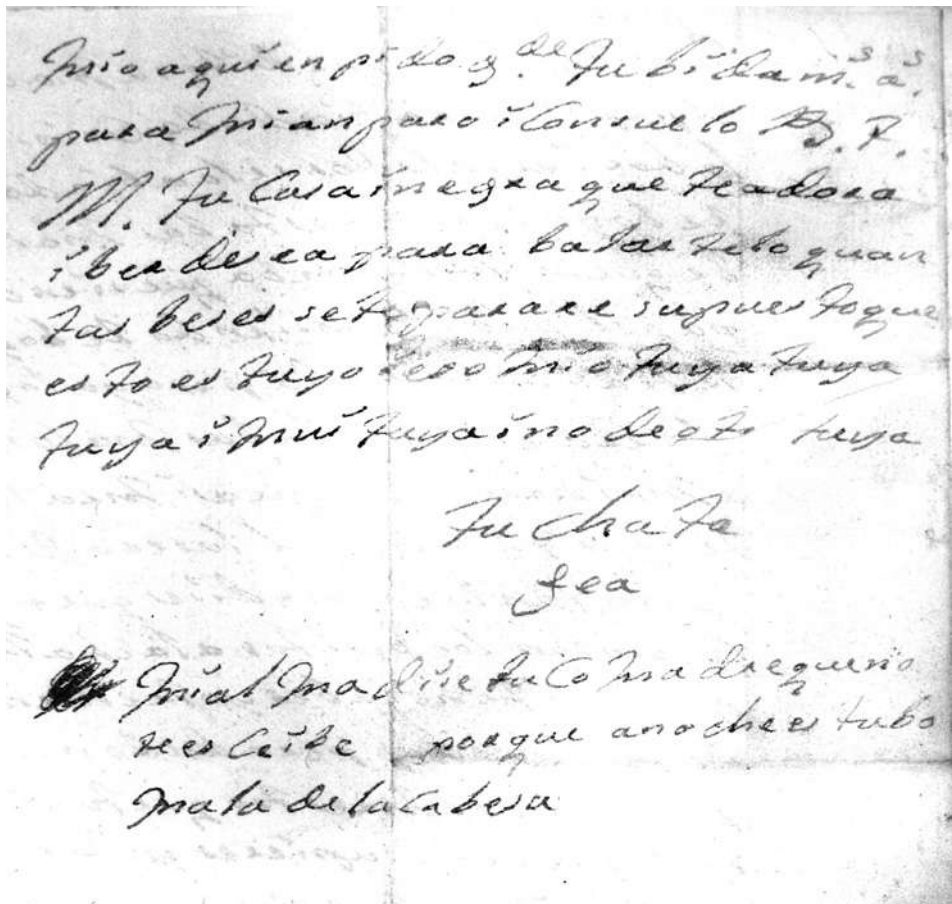 mio a quien pido g.de tu bida m.s a.s
para mi anparo i Consuelo B. T.
M. tu Casa i negra que te adora
i ber desea para
tas beses se te supuesto que
esto es tuyo mio tuya tuya
tuya i mui tuya i no de ot tuya
tu chata
fea
mi alma dise tu Comadre que no
te escribe porque anoche estubo
mala de la Cabesa